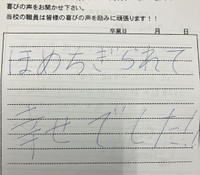 喜びの声をお聞かせ下さい。
当校の職員は皆様の喜びの声を励みに頑張ります!!
卒業日 月 日
ほめちぎられて
幸せでした!